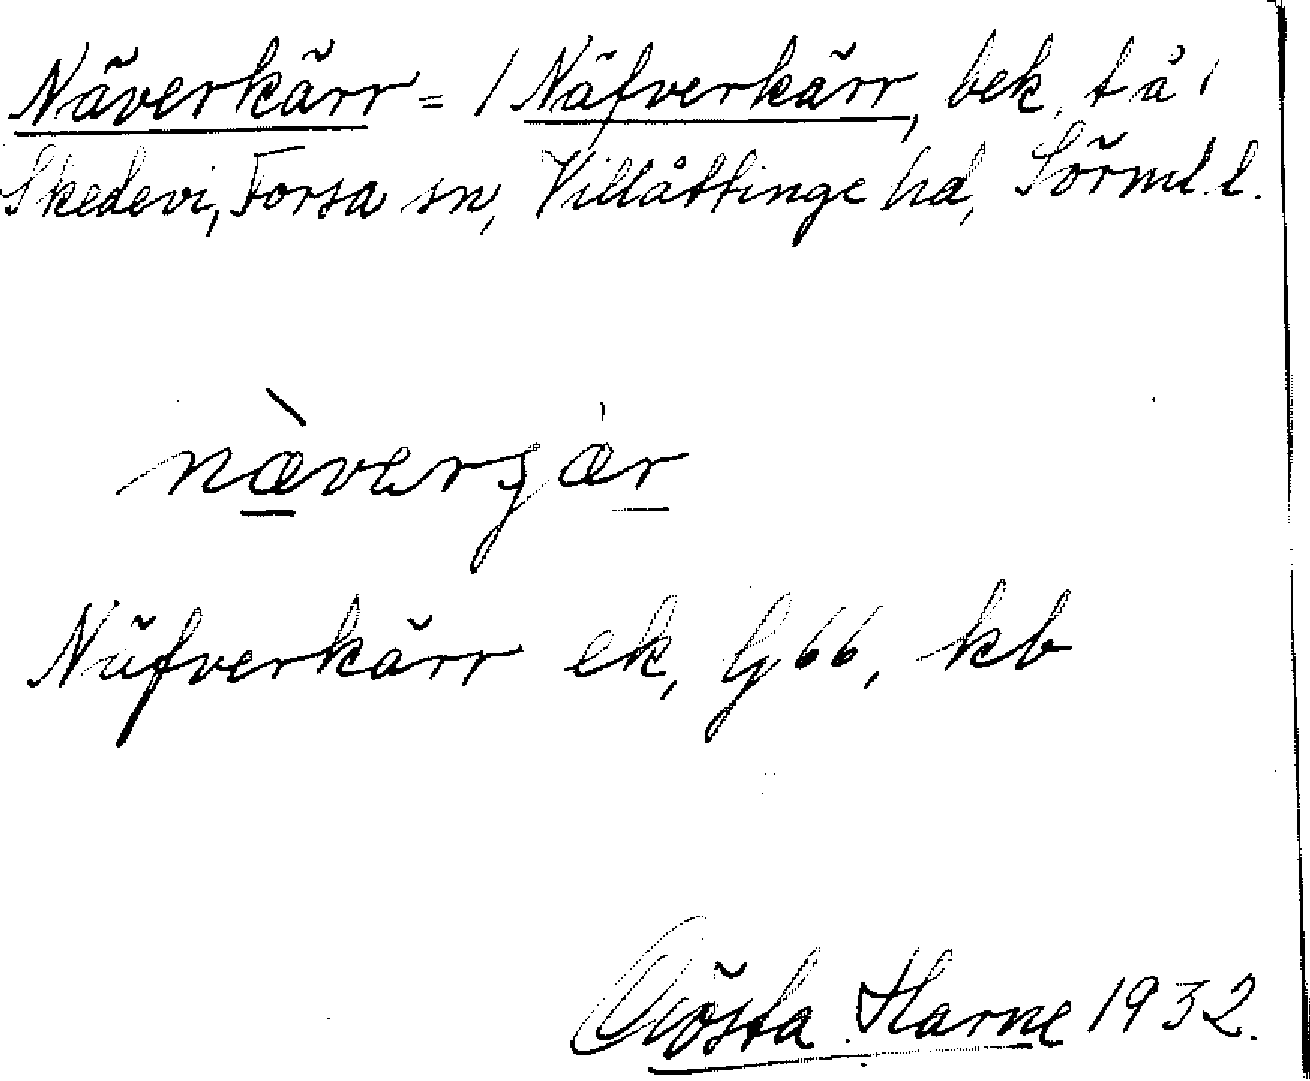 Näverkärr = / Näfverkärr, bek. t å i
Skedevi, Forsa sn, Villåttinge hd, Sörml. l.
næværçær
Näfverkärr ek, G 66, kb
Gösta Harne 1932.